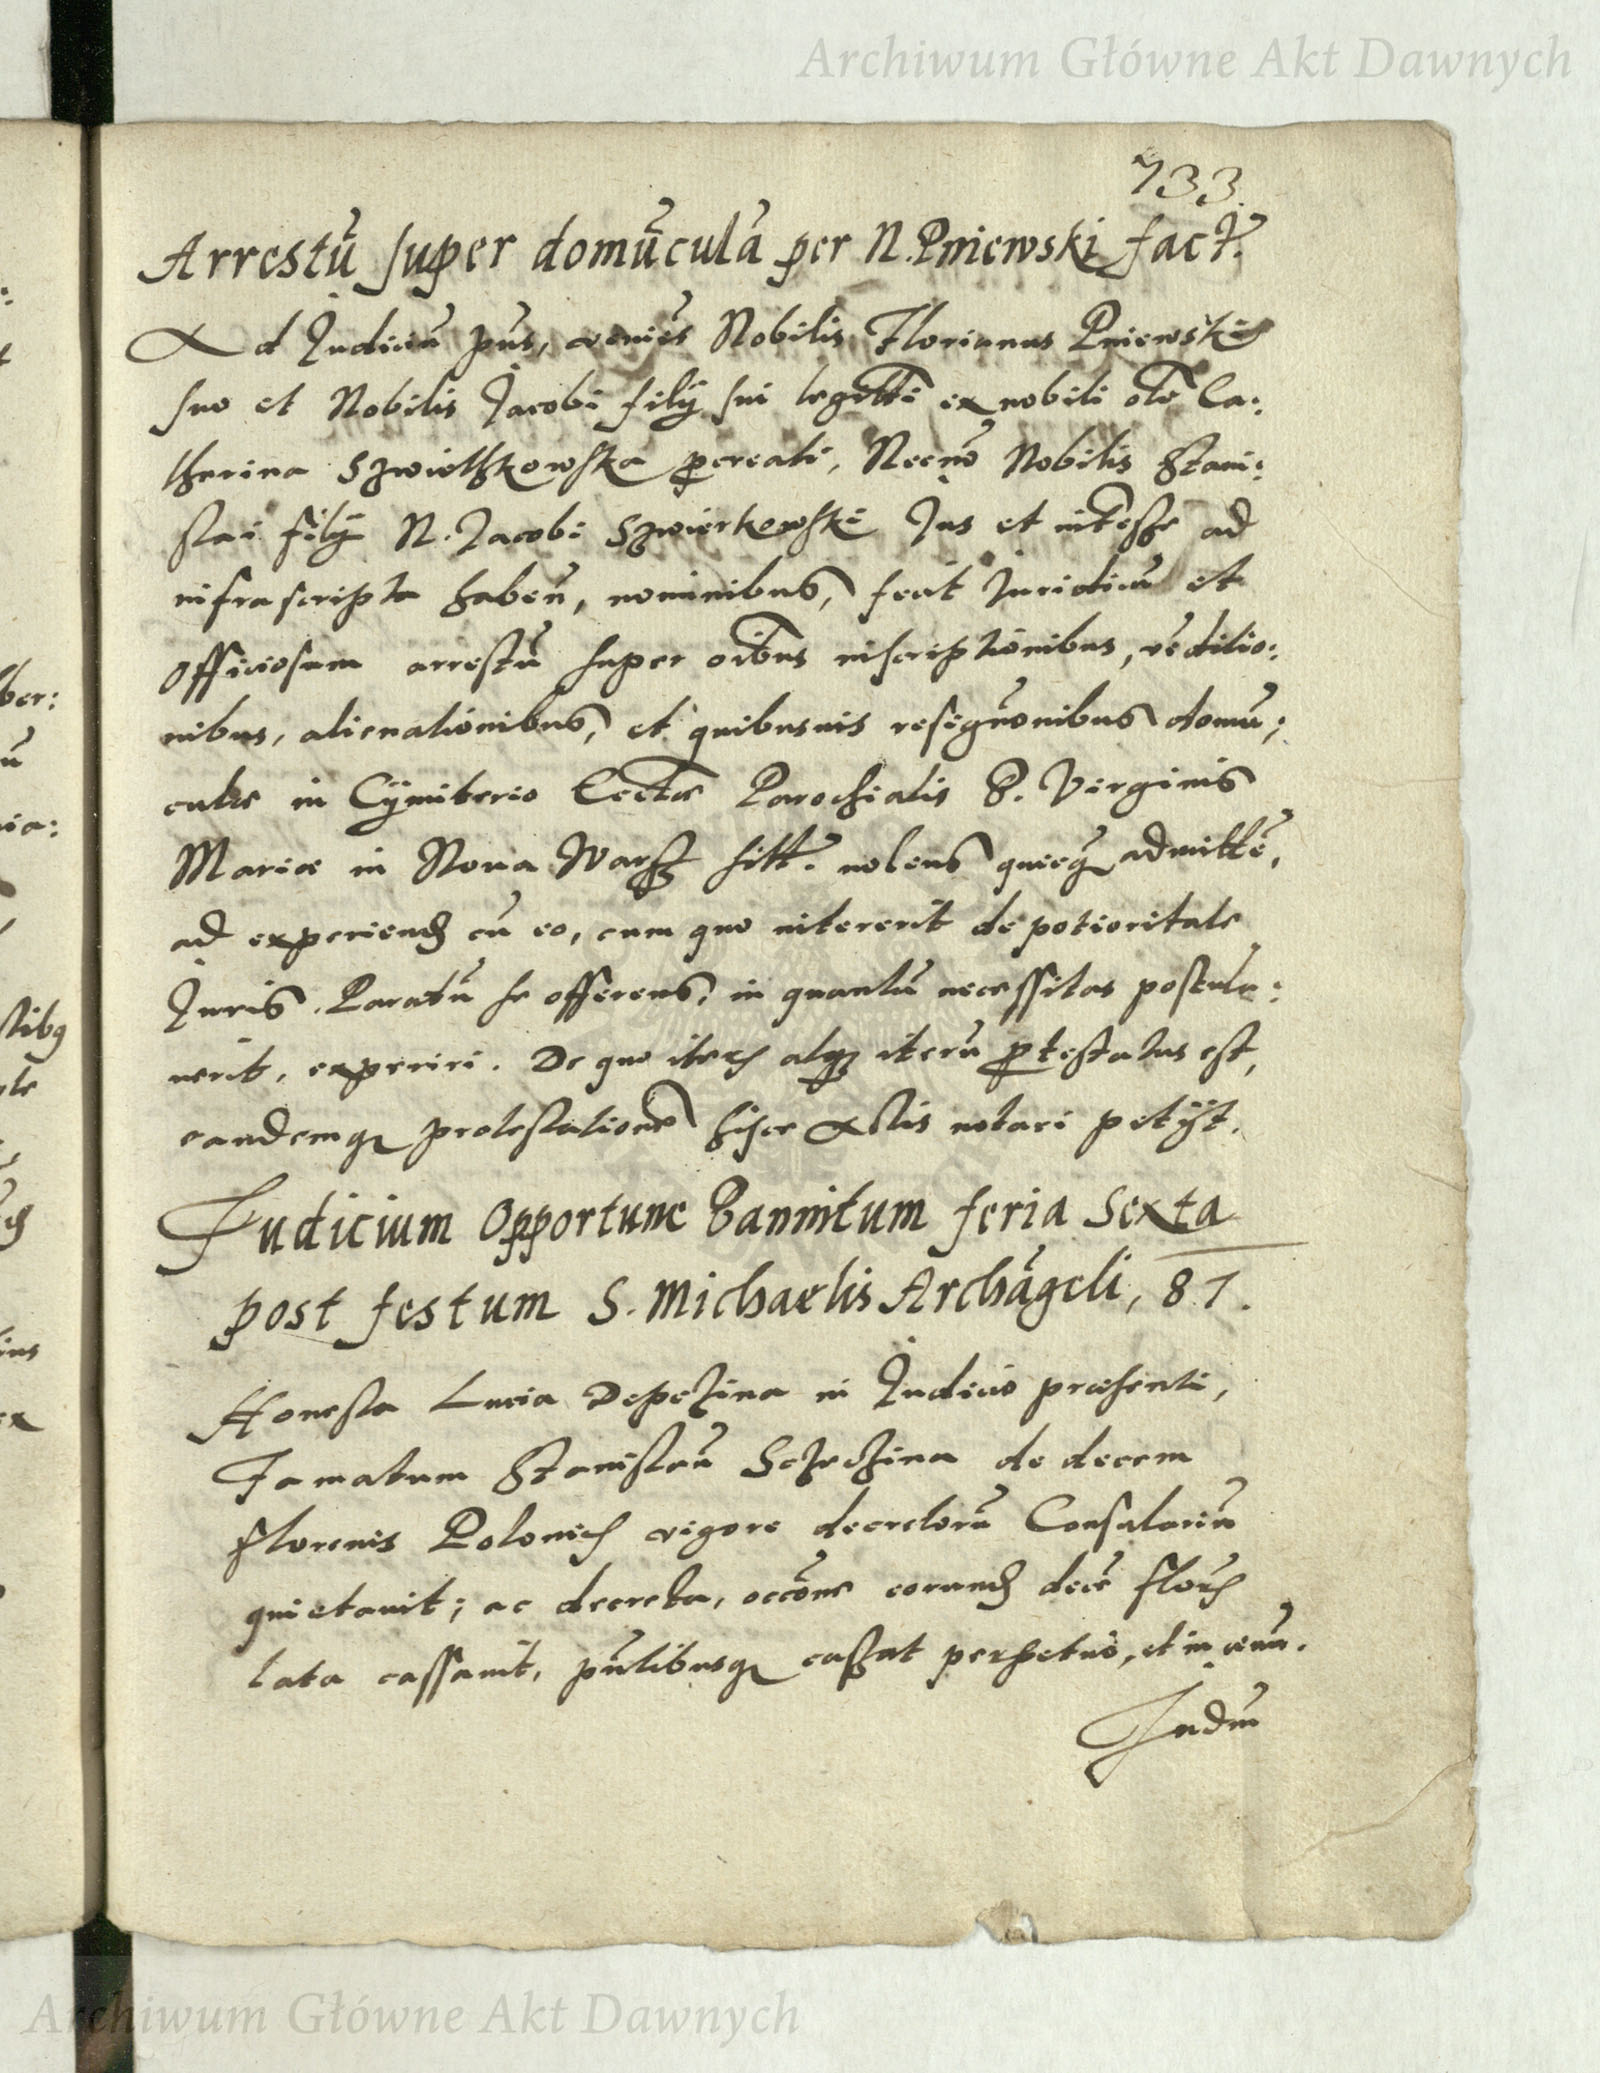 Archiwum Główne Akt Dawnych
733.
Arrestū super domūculā per N. Pniewski fact.
Ad Iudiciū pn̄s, veniēs Nobilis Florianus Pniewski
suo et Nobilis Jacobi filij sui legittī ex nobili olī Ca:
therina Szwiethkowska procreati, Necnō Nobilis Stani:
slai filij N. Jacobi Szwierkowski Jus et intesse ad
infrascripta haben̄, nominibus, fecit Iuridicū et
officiosum arrestū super oībus inscriptionibus, vēditio:
nibus, alienationibus, et quibusuis resignōnibus domū:
culae in Cÿmiterio Eccłae Parochialis B. Virginis
Mariae in Noua Warsz sitt. nolens queq admittē,
ad experiend cū eo, cum quo intererit de potioritate
Iuris. Paratū se offerens, in quantū necessitas postula:
uerit, experiri. De quo iterū atq iterū protestatus est,
eandemq protestationē hisce Actis notari petijt.
Iudicium Opportune Bannitum feria Sexta
post festum S. Michaelis Archāgeli, 87.
Honesta Lucia Depezina in Iudicio praesenti,
Famatum Stanislaū de decem
florenis Polonich vigore decretorū Consulariū
quietauit; ac decreta, occōne eorund decē flor
lata cassauit, pn̄tibusq caszat perpetuo, et in aeuū.
Iudm
Archiwum Główne Akt Dawnych